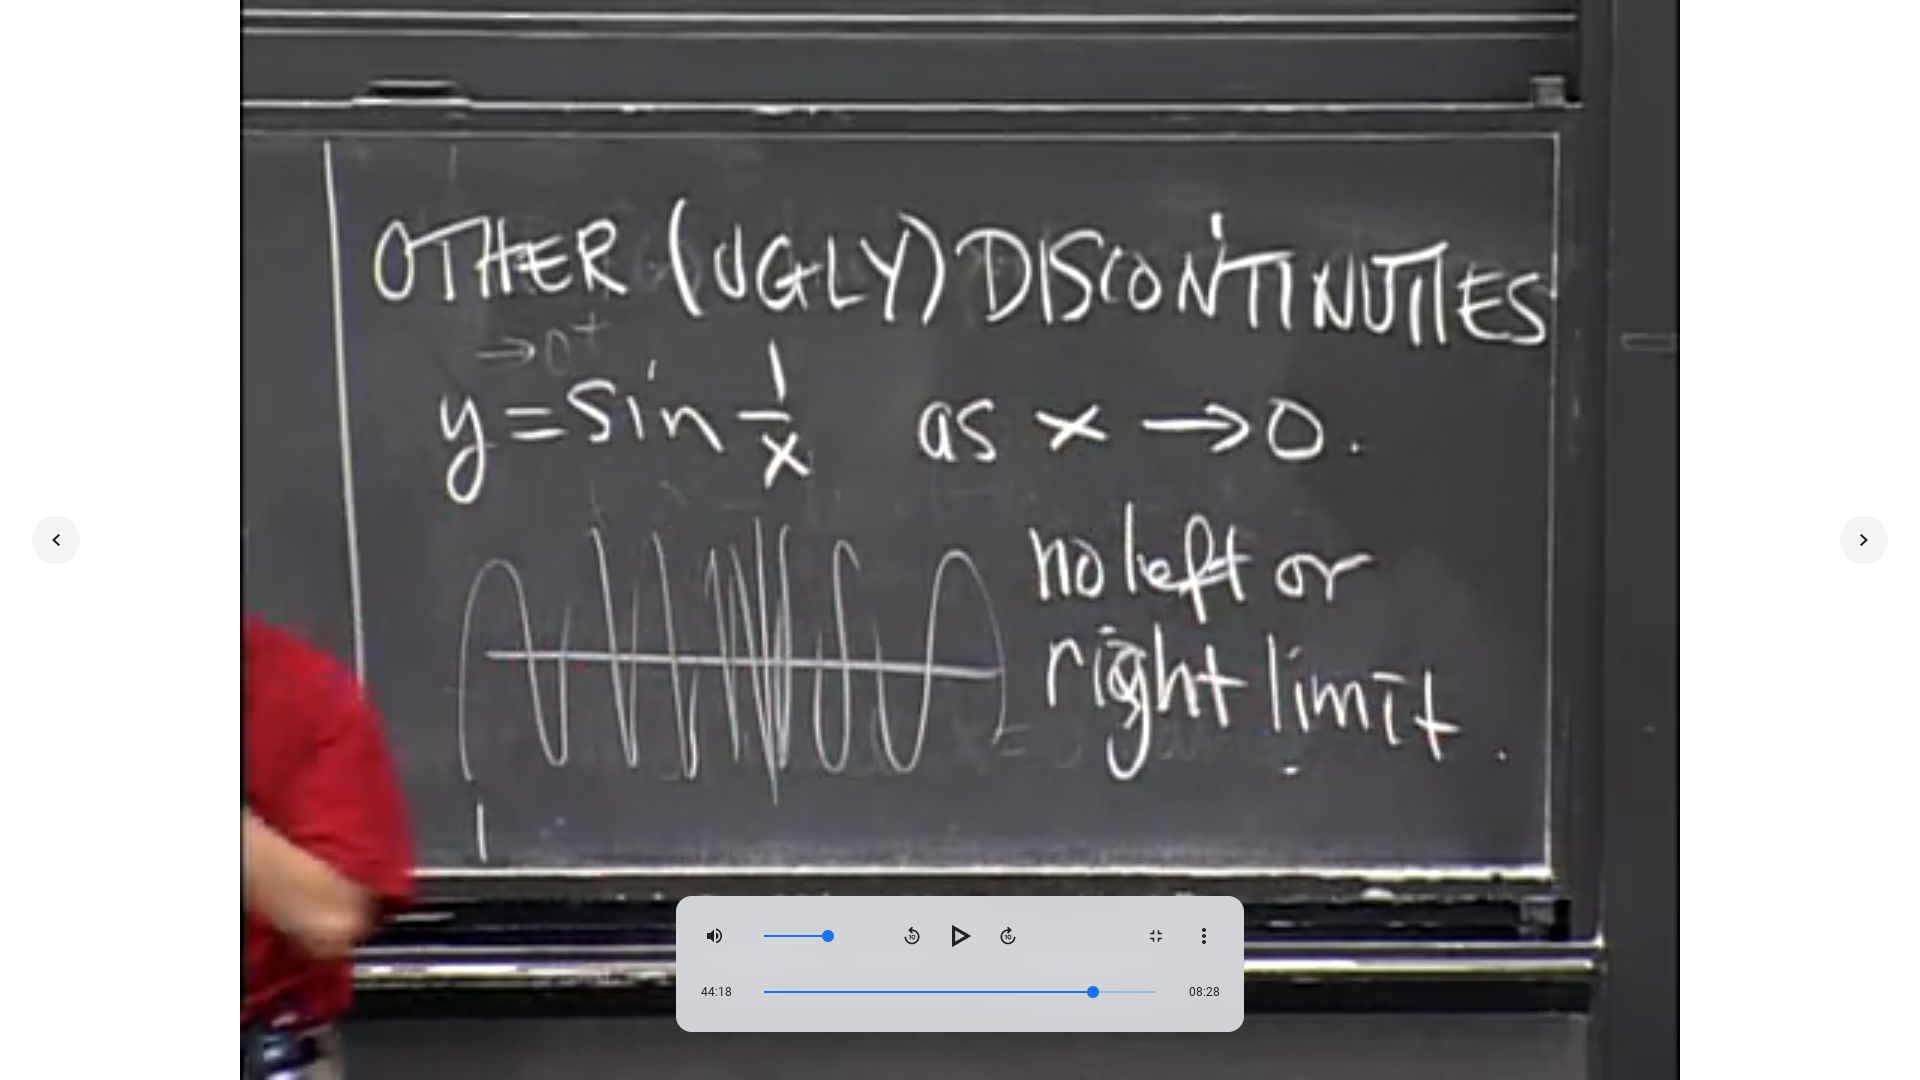 OTHER (UGLY) DISCONTINUTIES
→0⁺
y = sin 1/x as x → 0.
no left or
right limit.
10
10
44:18
08:28